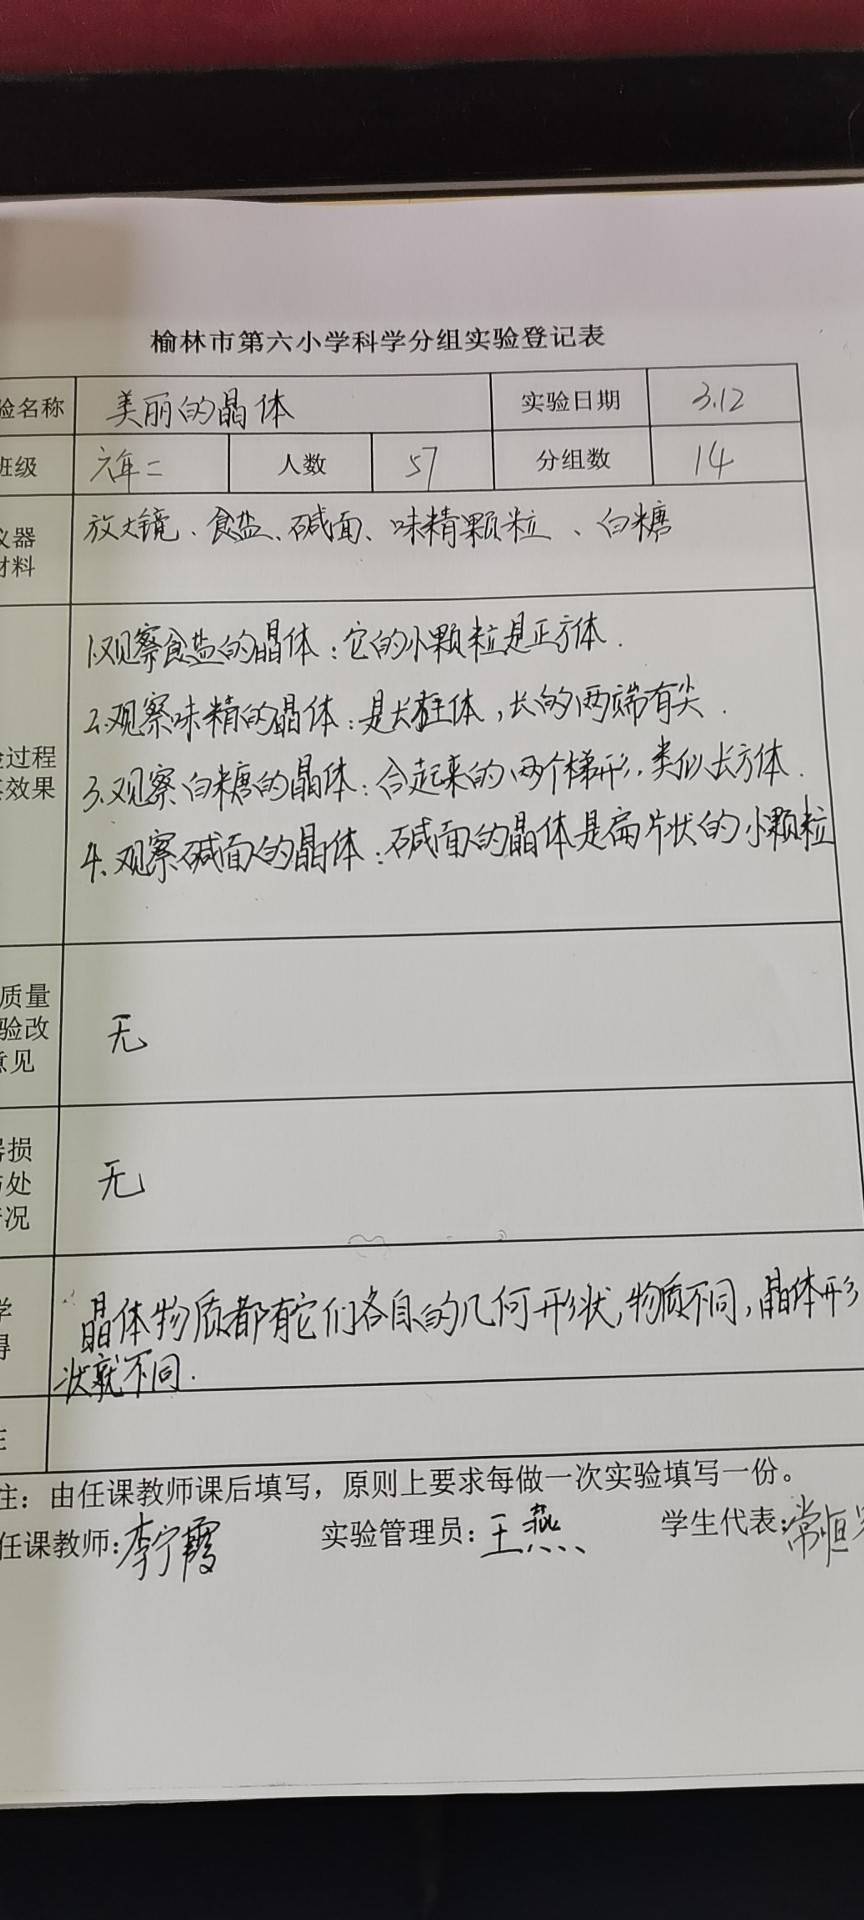 榆林市第六小学科学分组实验登记表
验名称 美丽的晶体 实验日期 3.12
班级 六年二 人数 57 分组数 14
仪器
材料
放大镜、食盐、碱面、味精颗粒、白糖
1.观察食盐的晶体:它的小颗粒是正方体.
2.观察味精的晶体:是长柱体,长的两端有尖.
过程
效果
3.观察白糖的晶体:合起来的两个梯形,类似长方体.
4.观察碱面的晶体:碱面的晶体是扁片状的小颗粒
质量
验改
意见
无
损
处
况
无
学
得
晶体物质都有它们各自的几何形状,物质不同,晶体形
状就不同.
注:由任课教师课后填写,原则上要求每做一次实验填写一份。
任课教师:李宁霞 实验管理员:王燕 学生代表:常恒